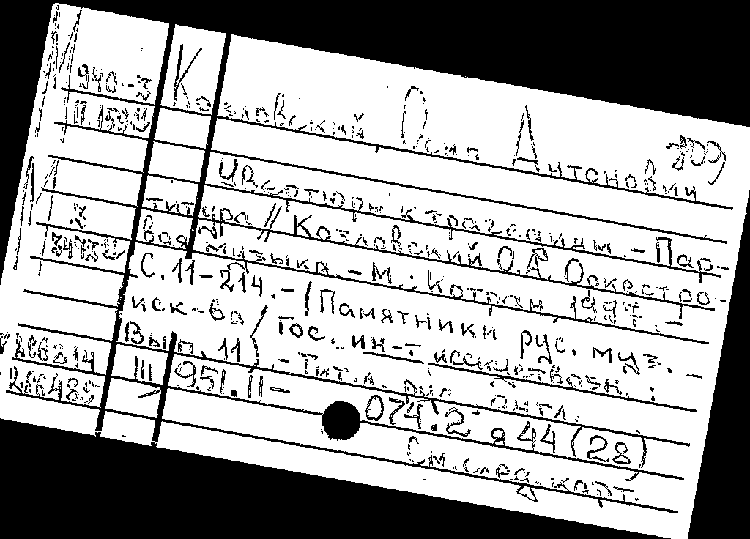 М 940-3
Козловский, Осип Антонович
Увертюры к трагедиям. - Пар-
титура // Козловский О.А. Оркестро-
вая музыка. - М.: Котран, 1997. -
С. 11-214. - (Памятники рус. муз.
иск-ва / Гос. ин-т искусствозн. ;
Вып. 11). - Тит. л. рус., англ.
III 951.II-
074.2 я 44 (28)
См. след. карт.